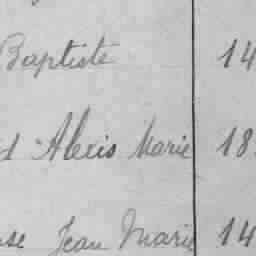 Baptiste 14
Alexis Marie 18
Jean Marie 14